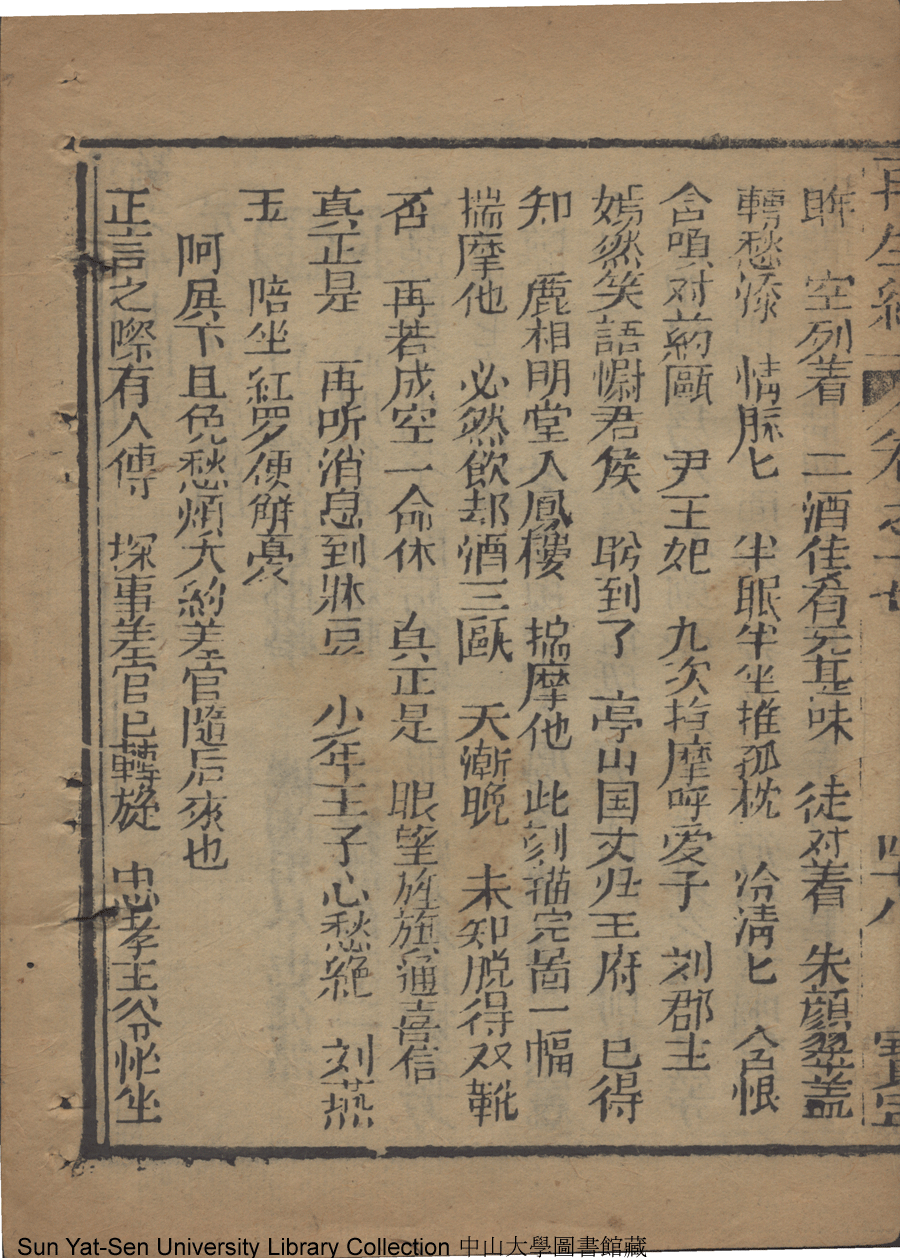 眸　空列着　二酒佳肴无甚味　徒对着　朱顔翠盖
轉愁添　情脉匕　半眠半坐推孤枕　冷清匕　含恨
含嗔对葯甌　尹王妃　九次揣摩呼愛子　刘郡主
嫣然笑語慰君侯　盼到了　亭山国丈归王府　已得
知　鹿相明堂入鳳樓　揣摩他　此刻描完啚一幅
揣摩他　必然飲却酒三甌　天漸晚　未知脱得双靴
否　再若成空一命休　真正是　眼望旌旗通喜信
真正是　再听消息到牀豆　小年王子心愁絶　刘燕
玉　陪坐紅罗便觧憂
呵展下且免愁煩大約差官隨后來也
正言之際有人傳　探事差官已轉旋　忠孝王爷忙坐
再生緣　卷之十　四十八　寶
Sun Yat-Sen University Library Collection 中山大學圖書館藏